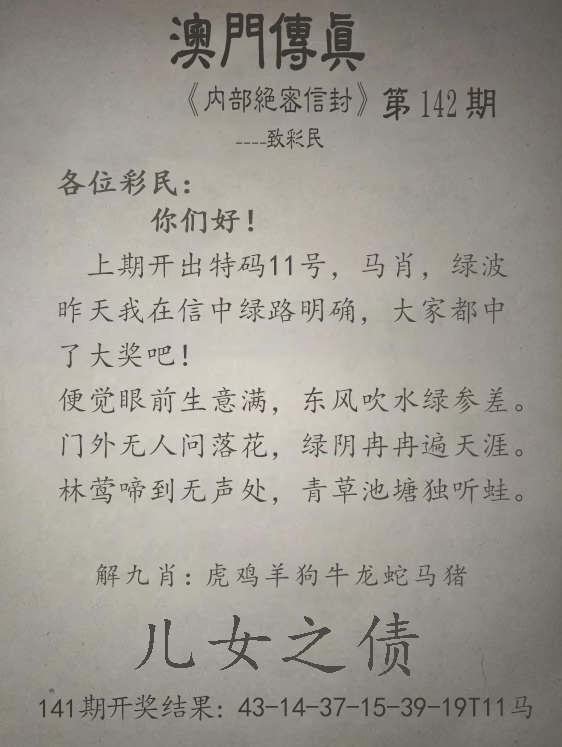 澳門傳眞
《内部絕密信封》第142期
----致彩民
各位彩民：
你们好！
上期开出特码11号，马肖，绿波
昨天我在信中绿路明确，大家都中
了大奖吧！
便觉眼前生意满，东风吹水绿参差。
门外无人问落花，绿阴冉冉遍天涯。
林莺啼到无声处，青草池塘独听蛙。
解九肖：虎鸡羊狗牛龙蛇马猪
儿女之债
141期开奖结果：43-14-37-15-39-19T11马